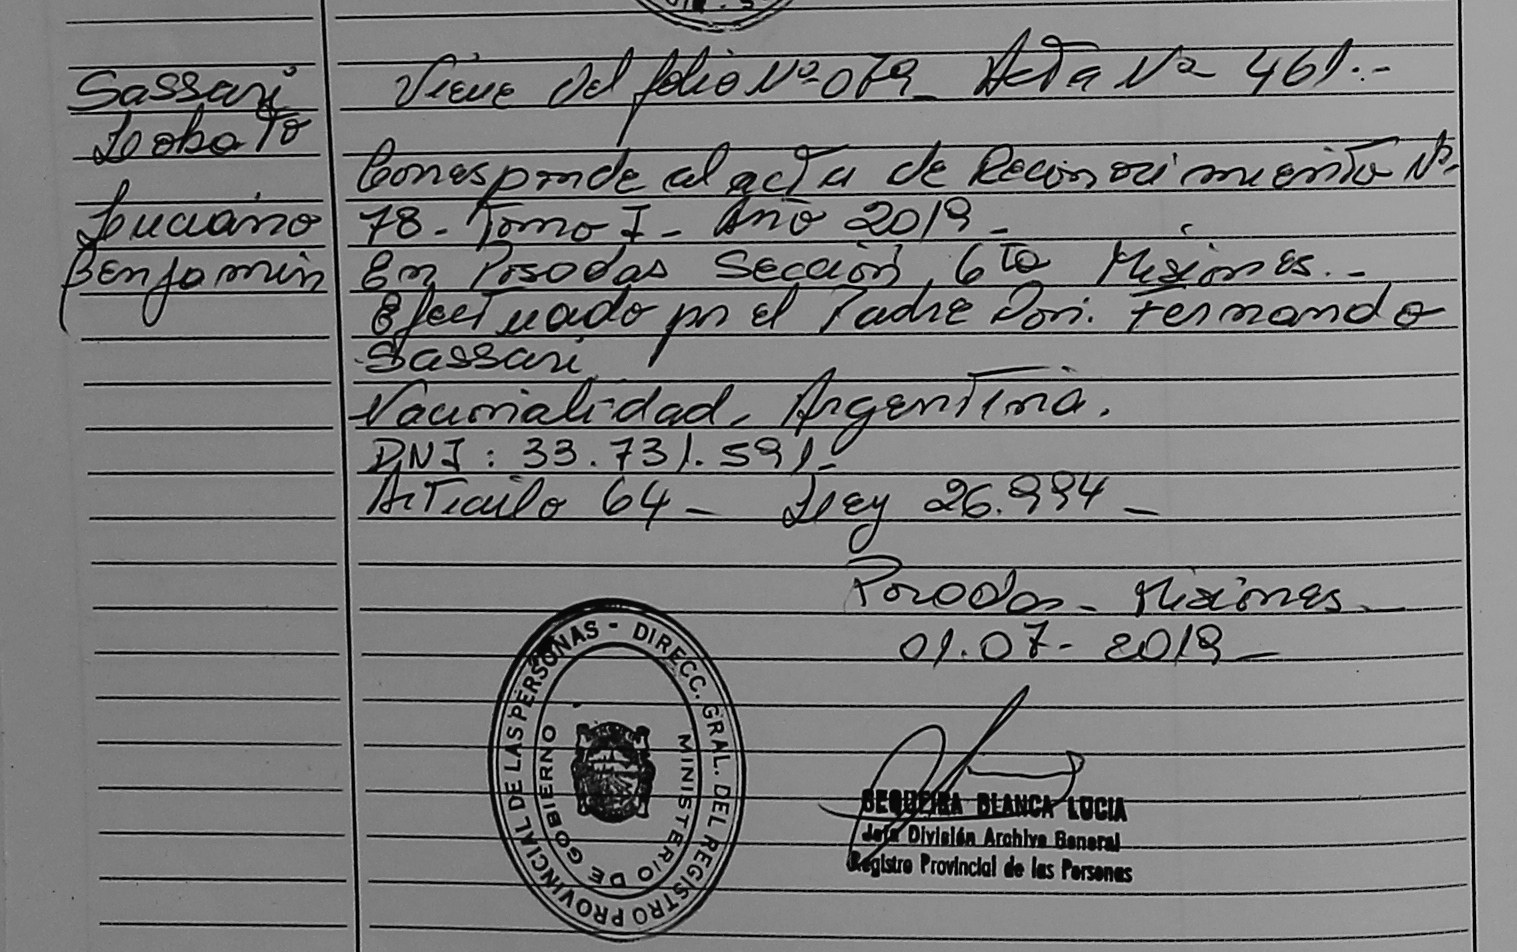 Sassari
Lobato
Luciano
Benjamin
Viene del folio Nº 079_ Acta Nº 461.-
Corresponde al acta de Reconocimiento Nº
78- Tomo I- Año 2019-
En Posadas Sección 6ta Misiones.-
Efectuado por el Padre Don: Fernando
Sassari
Nacionalidad, Argentina.
DNI: 33.731.591-
Articulo 64- Ley 26.994-
Posadas- Misiones-
01-07-2019-
REGISTRO PROVINCIAL DE LAS PERSONAS - DIRECC. GRAL. DEL
MINISTERIO DE GOBIERNO
SEQUEIRA BLANCA LUCIA
Jefa División Archivo General
Registro Provincial de las Personas